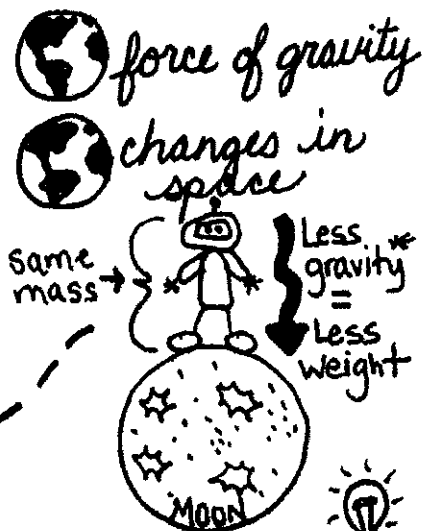 force of gravity
changes in
space
same
mass
Less
gravity*
=
Less
weight
MOON